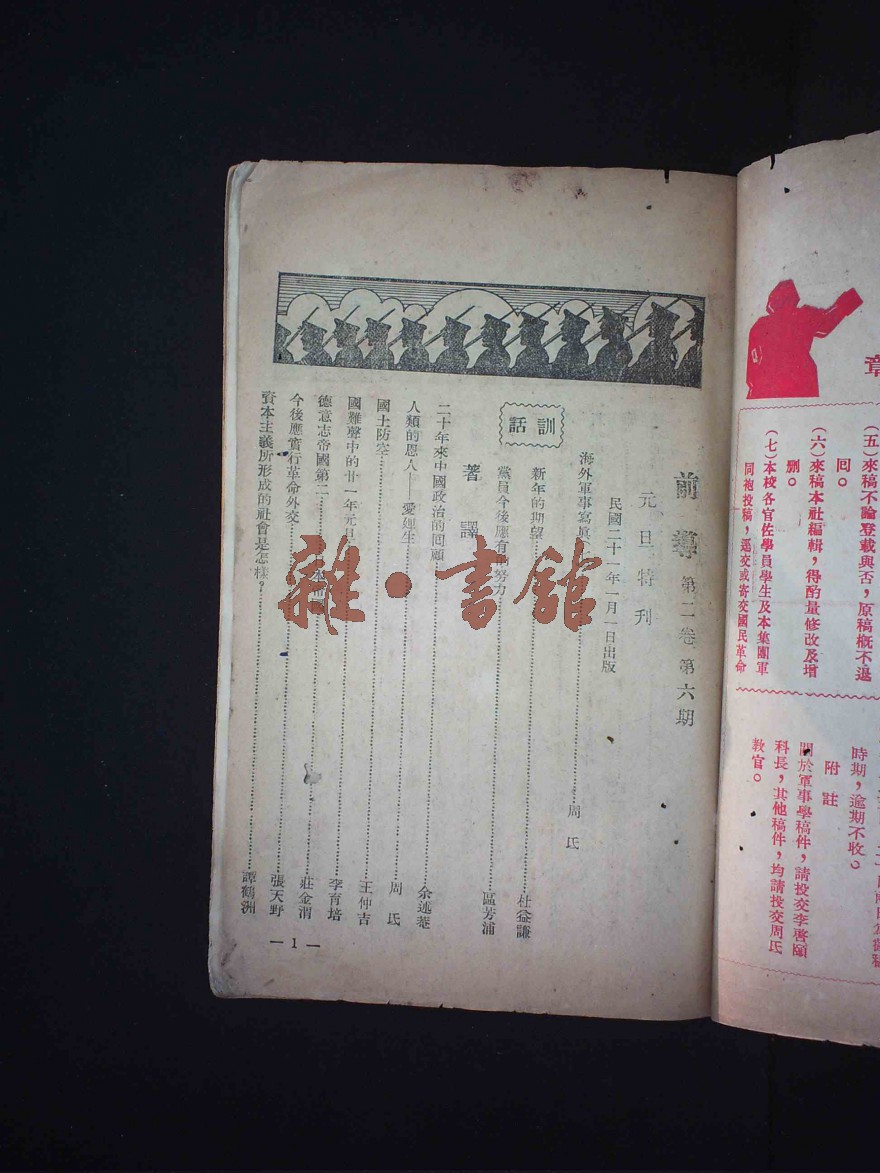 章
(五)來稿不論登載與否,原稿概不退
回。
(六)來稿本社編輯,得酌量修改及增
刪。
(七)本校各官佐學員學生及本集團軍
同袍投稿,逕交或寄交國民革命
時期,逾期不收。
附註
關於軍事學稿件,請投交李啓頤
科長,其他稿件,均請投交周氏
教官。
前導 第二卷第六期
元旦特刊
民國二十一年一月一日出版
海外軍事寫眞 周氏
訓話
新年的期望 杜益謙
黨員今後應有的努力 區芳浦
著譯
二十年來中國政治的回顧 余述菴
人類的恩人——愛迪生 周氏
國土防空 王仲吉
國難聲中的廿一年元旦 李育培
德意志帝國第二 莊金渭
今後應實行革命外交 張天野
資本主義所形成的社會是怎樣? 譚鶴洲
—1—
雜·書館